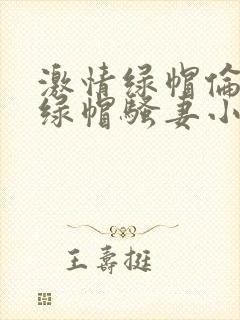 激情绿帽倫
绿帽騷妻小
王壽挺